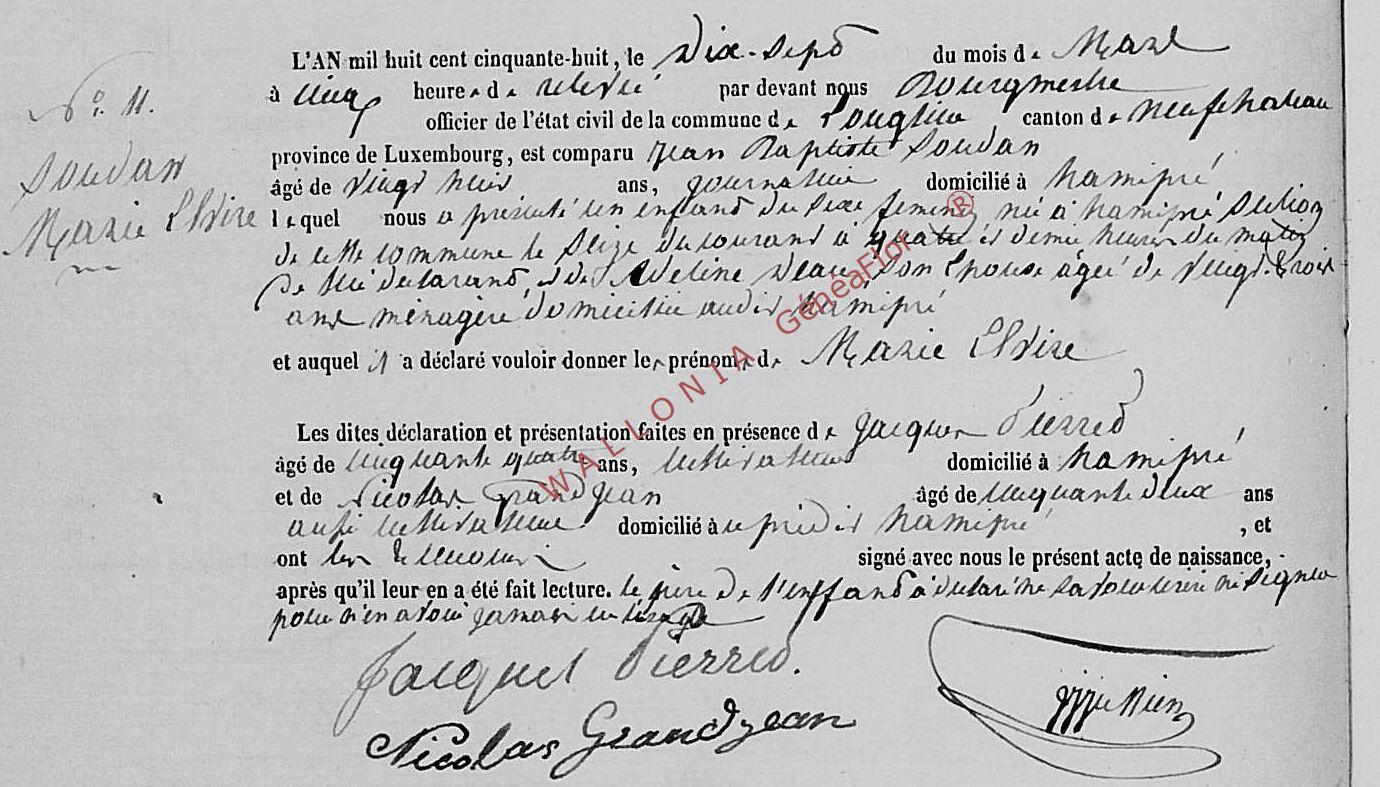 N.° 11.
Soudan
Marie Elvire
L'AN mil huit cent cinquante-huit, le Dix-sept du mois de Mars
à cinq heures de relevé par devant nous Bourgmestre
officier de l'état civil de la commune de Longlier canton de neufchateau
province de Luxembourg, est comparu Jean Baptiste Soudan
âgé de vingt huit ans, journalier domicilié à hamipré
lequel nous a présenté un enfant du sexe feminin né à hamipré section
de cette commune le Seize du courant à quatre et demie heures du matin
de lui déclarant, et de Adeline son Epouse âgée de vingt-trois
ans ménagère domiciliée audit hamipré
et auquel il a déclaré vouloir donner les prénoms de Marie Elvire
Les dites déclaration et présentation faites en présence de Jacques Pierred
âgé de cinquante quatre ans, cultivateur domicilié à hamipré
et de Nicolas Grandjean âgé de cinquante deux ans
aussi cultivateur domicilié à hamipré , et
ont les témoins signé avec nous le présent acte de naissance,
après qu'il leur en a été fait lecture. le père de l'enffant à déclaré ne savoir écrire ni signer
pour n'en avoir jamais eu l'usage
Jacques Pierred.
Nicolas Grandjean
WALLONIA GénéaFlor ®